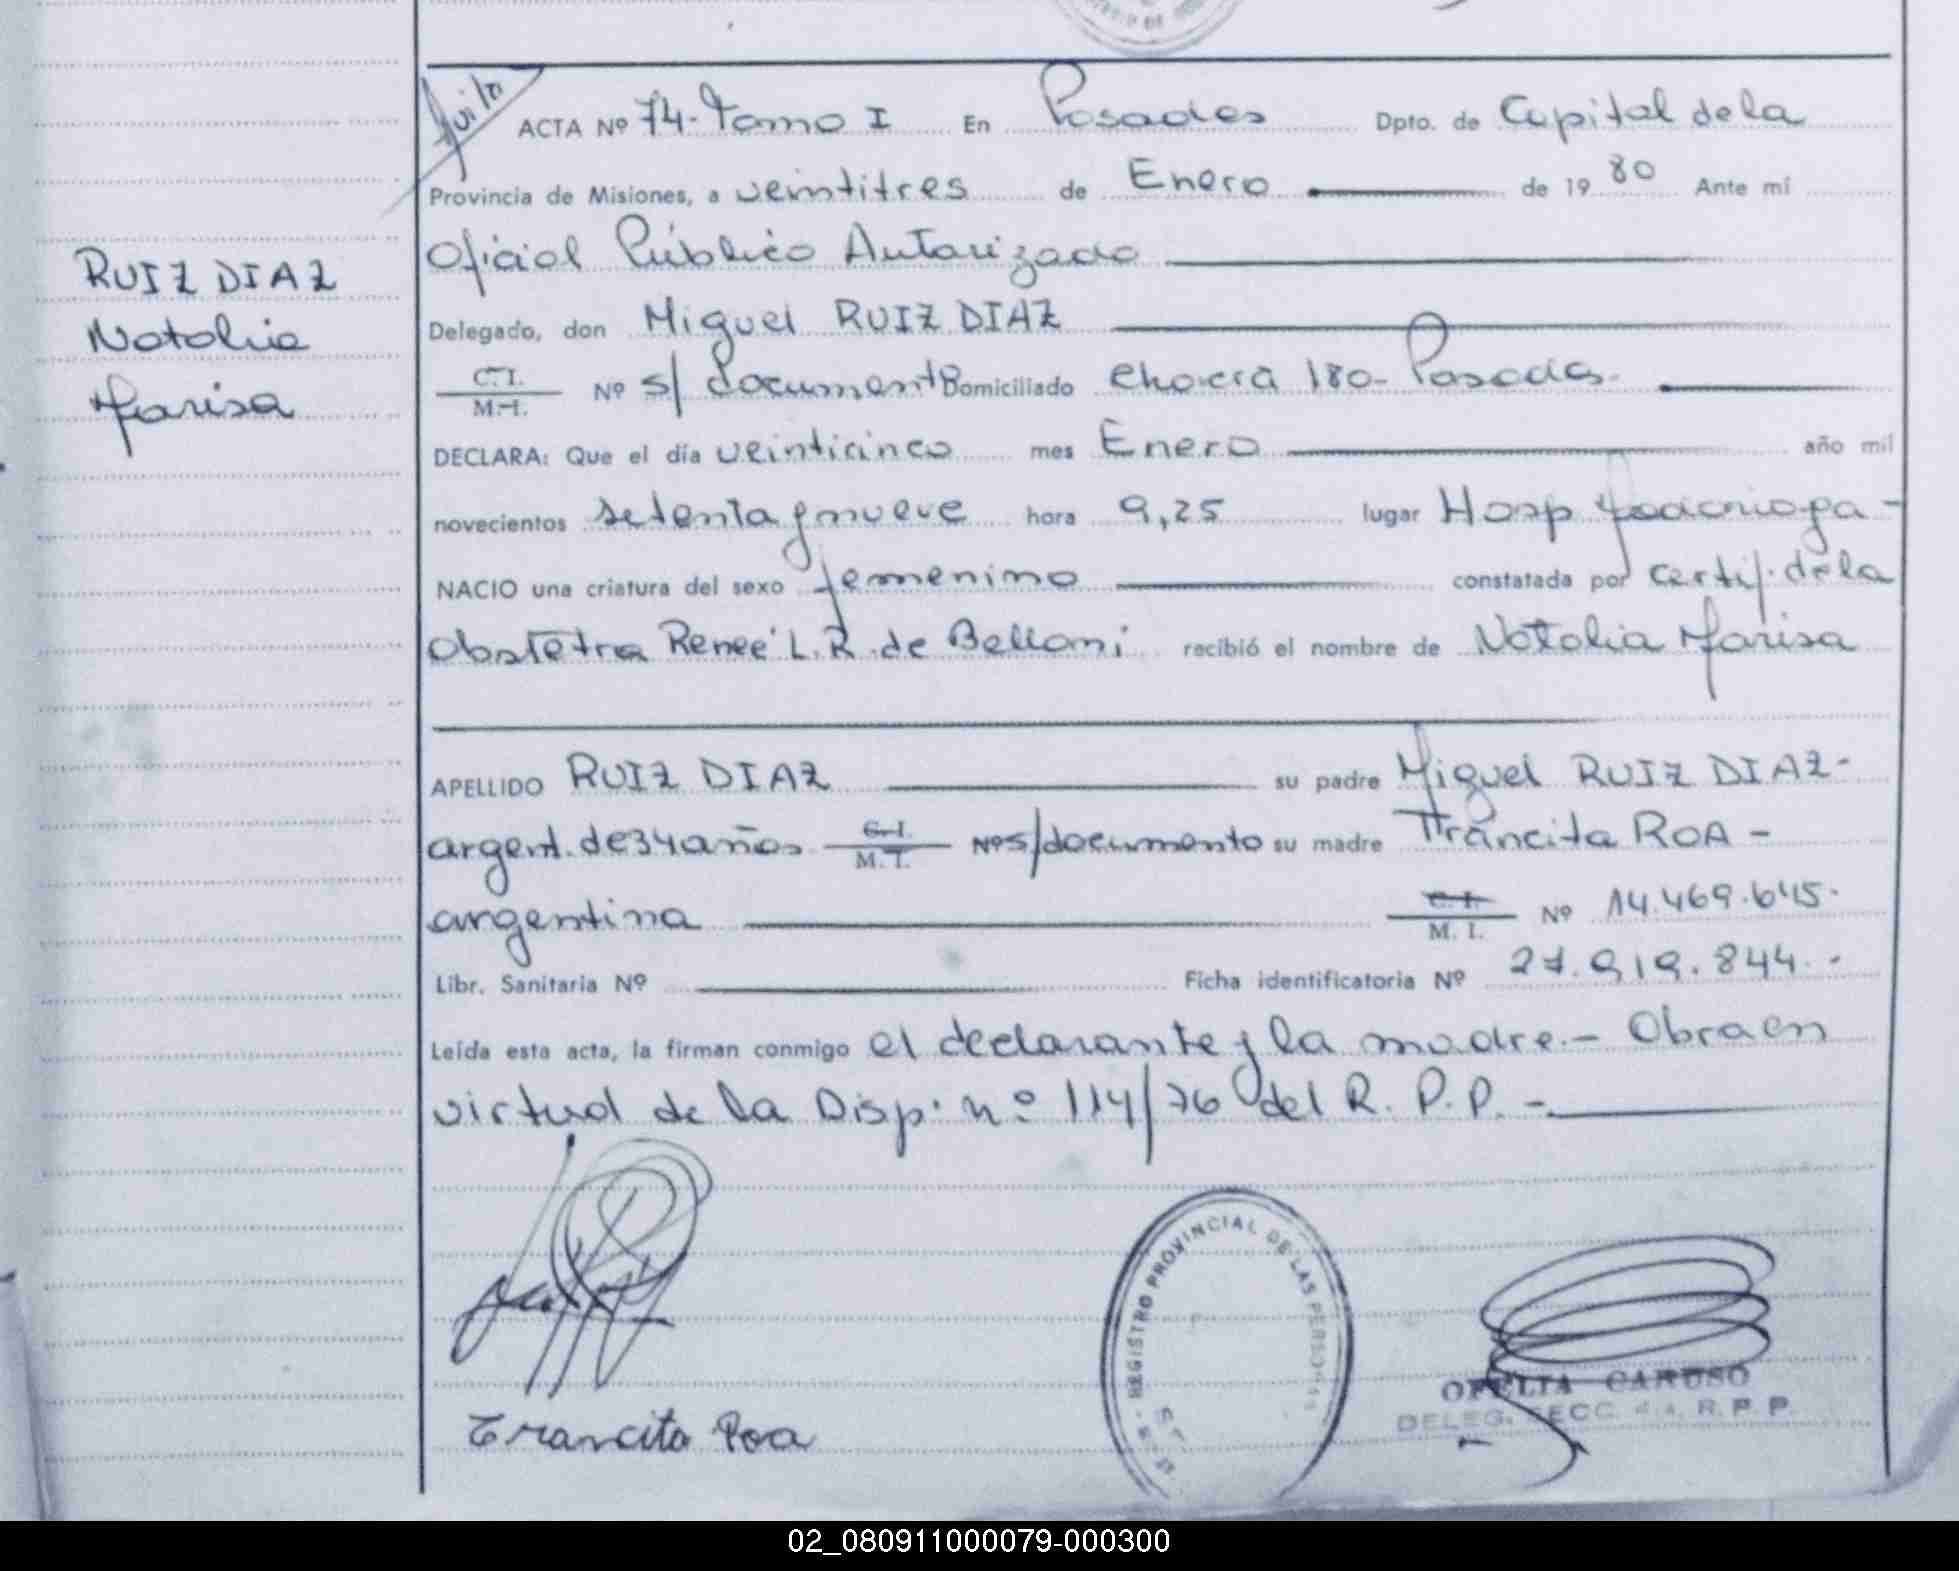 ACTA Nº 74- Tomo I En Posadas Dpto. de Capital de la
Provincia de Misiones, a veintitres de Enero de 19 80 Ante mí
Oficial Público Autorizado
RUIZ DIAZ
Natalia
Marisa
Delegado, don Miguel RUIZ DIAZ
C.I. M.I. Nº s/ documento Domiciliado 180- Posadas-
DECLARA: Que el día veinticinco mes Enero año mil
novecientos setenta y nueve hora 9,25 lugar Hosp Madariaga-
NACIO una criatura del sexo femenino constatada por certif. de la
Obstetra Renee L. R. de Belloni recibió el nombre de Natalia Marisa
APELLIDO RUIZ DIAZ su padre Miguel RUIZ DIAZ-
argent. de 34 años C.I. M.I. Nº s/documento su madre Trancita ROA-
argentina C.I. M.I. Nº 14.469.645-
Libr. Sanitaria Nº Ficha identificatoria Nº 27.919.844.-
Leída esta acta, la firman conmigo el declarante y la madre.- Obra en
virtud de la Disp. nº 114/76 del R. P. P.-
REGISTRO PROVINCIAL DE LAS PERSONAS
OFELIA CARUSO
DELEG. SECC. 4a. R. P. P.
Trancita Roa
02_080911000079-000300